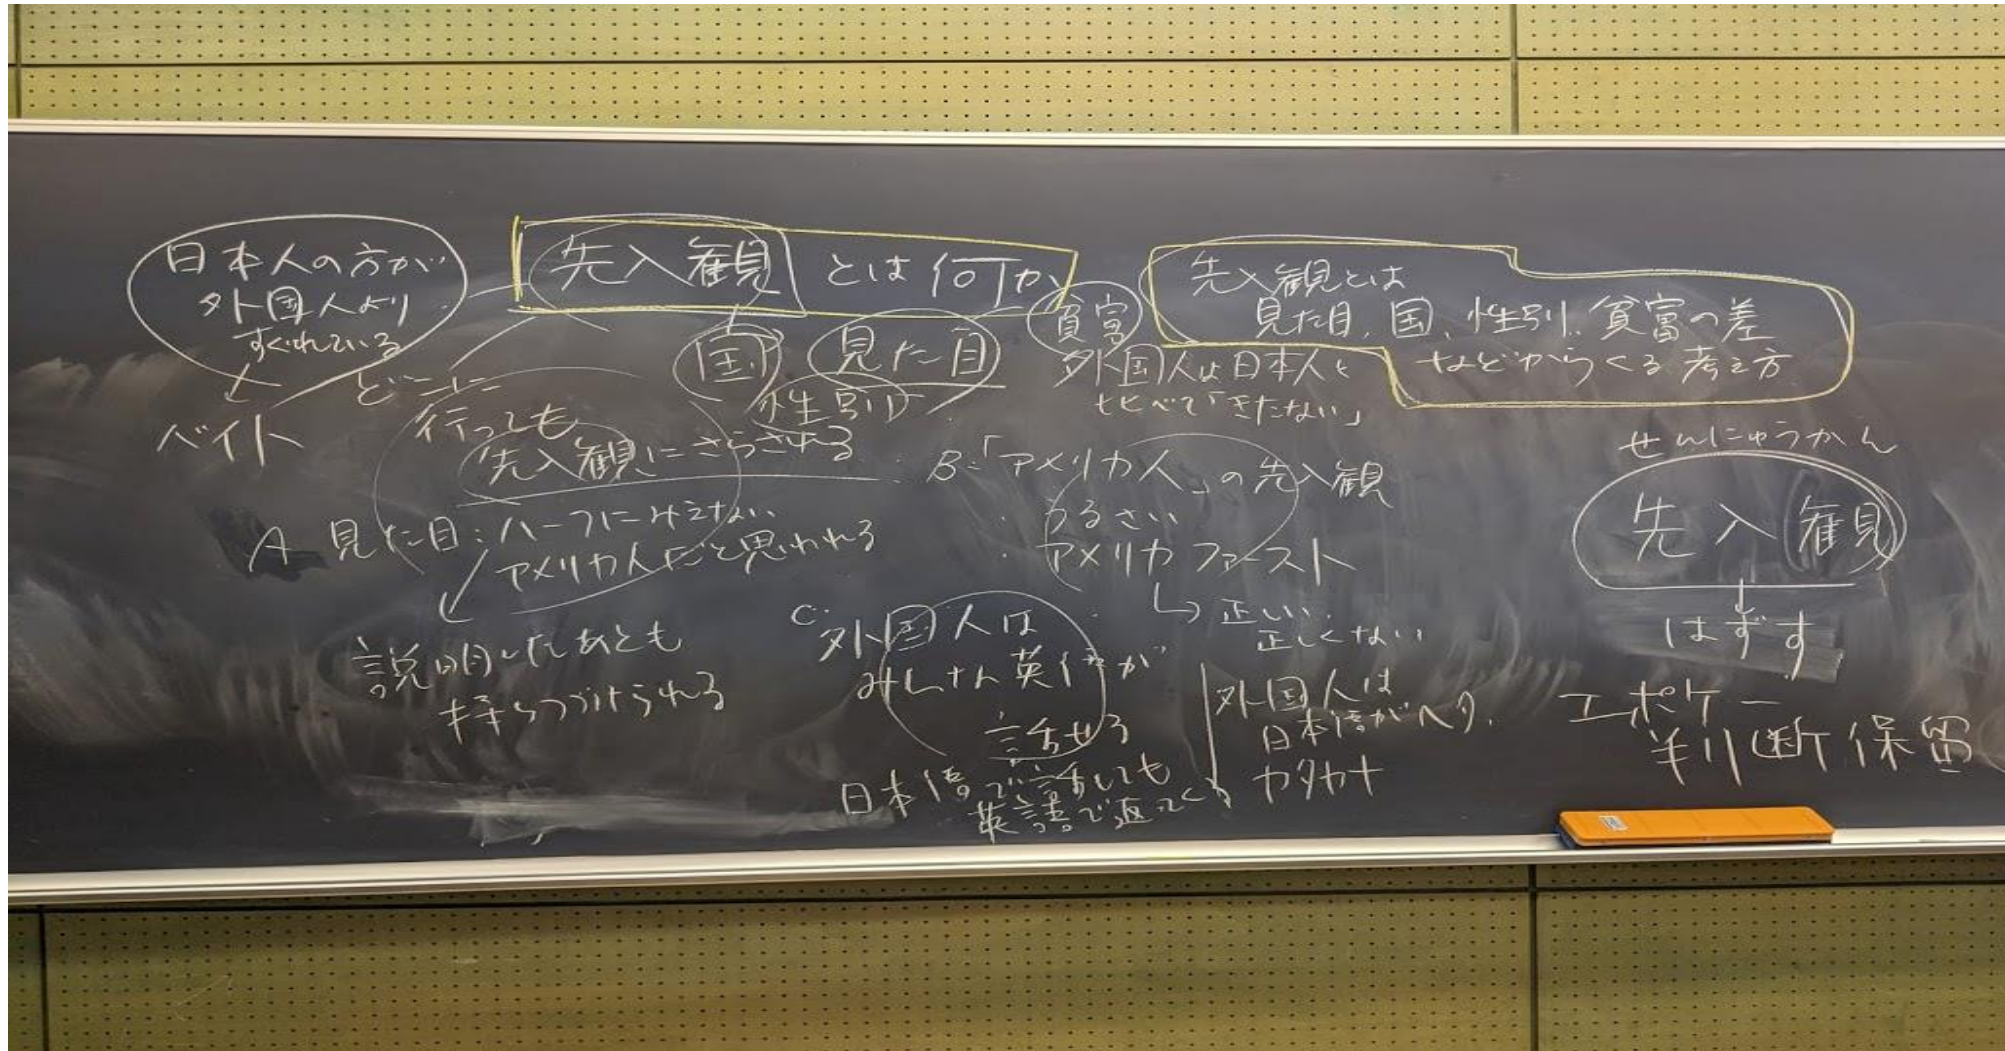 日本人の方が
外国人より
すぐれている
バイト
先入観とは何か
国
見た目
性別
貧富
外国人は日本人と
比べて「きたない」
先入観とは
見た目、国、性別、貧富の差
などからくる考え方
どこに
行っても
先入観にさらされる
A 見た目:ハーフにみえない
アメリカ人だと思われる
説明したあとも
持ちつづけられる
B:「アメリカ人」の先入観
・うるさい
・アメリカファースト
正しい
正しくない
C.外国人は
みなさん英語が
話せる
日本語で話しても
英語で返ってくる
外国人は
日本語がヘタ、
カタカナ
せんにゅうかん
先入観
はずす
エポケー
判断保留